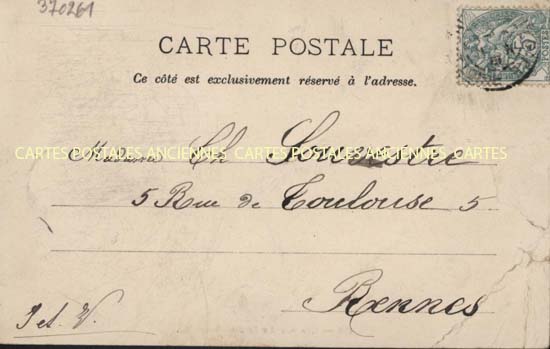 370261
CARTE POSTALE
Ce côté est exclusivement réservé à l'adresse.
Madame Ch
CARTES POSTALES ANCIENNES CARTES POSTALES ANCIENNES CARTES
5 Rue de Toulouse 5
Rennes
I et V.